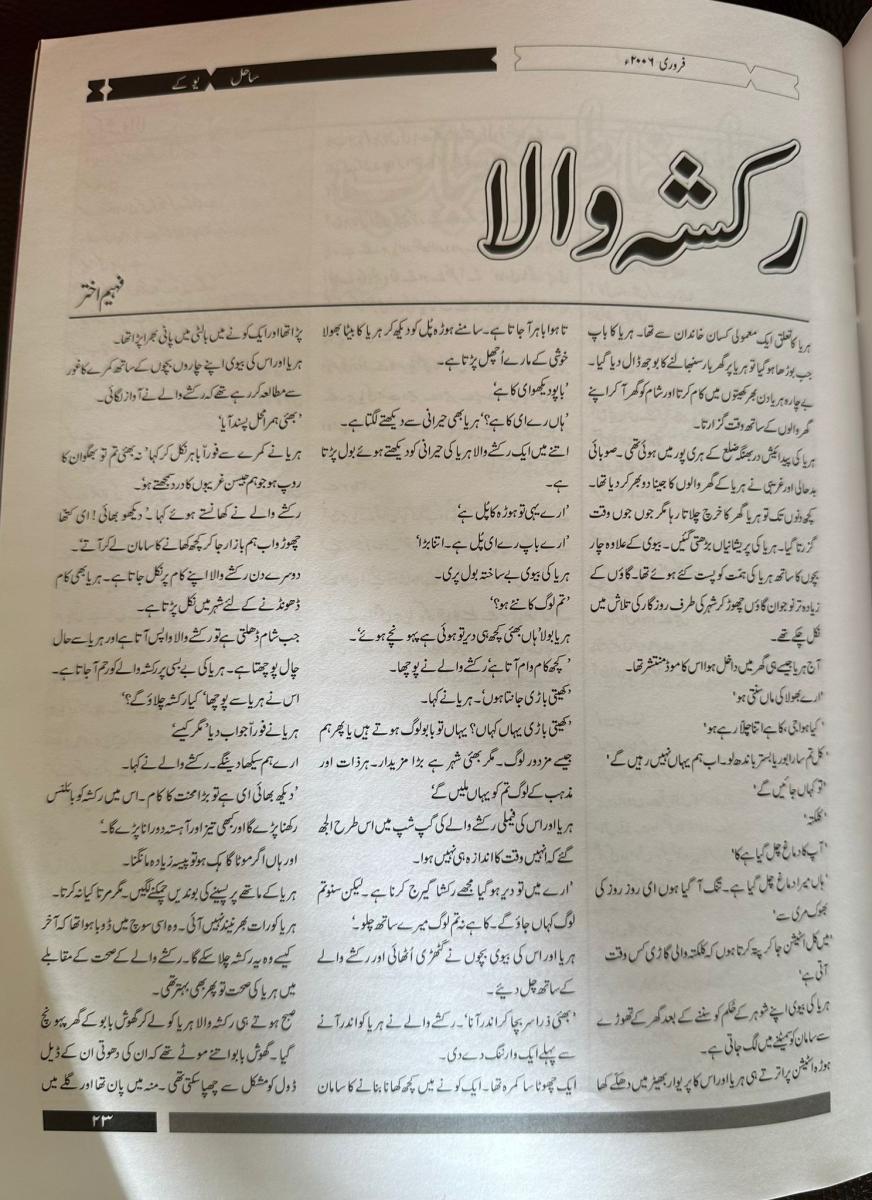 فروری ۲۰۰۶ء
ساحل
یو کے
رکشہ والا
فہیم اختر
ہریا کا تعلق ایک معمولی کسان خاندان سے تھا۔ ہریا کا باپ
جب بوڑھا ہو گیا تو ہریا پر گھربار سنبھالنے کا بوجھ ڈال دیا گیا۔
بے چارہ ہریا دن بھر کھیتوں میں کام کرتا اور شام کو گھر آ کر اپنے
گھر والوں کے ساتھ وقت گزارتا۔
ہریا کی پیدائش دربھنگہ ضلع کے ہری پور میں ہوئی تھی۔ صوبائی
بدحالی اور غریبی نے ہریا کے گھر والوں کا جینا دوبھر کر دیا تھا۔
کچھ دنوں تک تو ہریا گھر کا خرچ چلاتا رہا مگر جوں جوں وقت
گزرتا گیا۔ ہریا کی پریشانیاں بڑھتی گئیں۔ بیوی کے علاوہ چار
بچوں کا ساتھ ہریا کی ہمّت کو پست کئے ہوئے تھا۔ گاؤں کے
زیادہ تر نوجوان گاؤں چھوڑ کر شہر کی طرف روزگار کی تلاش میں
نکل چکے تھے۔
آج ہریا جیسے ہی گھر میں داخل ہوا اس کا موڈ منتشر تھا۔
'ارے بھولا کی ماں سنتی ہو'
'کیا ہوا جی، کا ہے اتنا چلّا رہے ہو'
'کل تم سارا بوریا بستر باندھ لو۔ اب ہم یہاں نہیں رہیں گے'
'تو کہاں جائیں گے'
'کلکتہ'
'آپ کا دماغ چل گیا ہے کا'
'ہاں میرا دماغ چل گیا ہے۔ تنگ آ گیا ہوں ای روز روز کی
بھوک مری سے'
'میں کل اسٹیشن جا کر پتہ کرتا ہوں کہ کلکتہ والی گاڑی کس وقت
آتی ہے'
ہریا کی بیوی اپنے شوہر کے حُکم کو سننے کے بعد گھر کے تھوڑے
سے سامان کو سمیٹنے میں لگ جاتی ہے۔
ہوڑہ اسٹیشن پر اترتے ہی ہریا اور اس کا پریوار بھیڑ میں دھکّے کھا
تا ہوا باہر آ جاتا ہے۔ سامنے ہوڑہ پُل کو دیکھ کر ہریا کا بیٹا بھولا
خوشی کے مارے اُچھل پڑتا ہے۔
'باپو دیکھو ای کا ہے'
'ہاں رے ای کا ہے؟' ہریا بھی حیرانی سے دیکھنے لگتا ہے۔
اتنے میں ایک رکشے والا ہریا کی حیرانی کو دیکھتے ہوئے بول پڑتا
ہے۔
'ارے یہی تو ہوڑہ کا پُل ہے'
'ارے باپ رے ای پُل ہے۔ اتنا بڑا'
ہریا کی بیوی بے ساختہ بول پری۔
'تم لوگ کا نئے ہو؟'
ہریا بولا 'ہاں بھئی کچھ ہی دیر تو ہوئی ہے پہونچے ہوئے'۔
'کچھ کام وام آتا ہے' رکشے والے نے پوچھا۔
'کھیتی باڑی جانتا ہوں'۔ ہریا نے کہا۔
'کھیتی باڑی یہاں کہاں؟ یہاں تو بابو لوگ ہوتے ہیں یا پھر ہم
جیسے مزدور لوگ۔ مگر بھئی شہر ہے بڑا مزیدار۔ ہر ذات اور
مذہب کے لوگ تم کو یہاں ملیں گے'
ہریا اور اس کی فیملی رکشے والے کی گپ شپ میں اس طرح الجھ
گئے کہ انہیں وقت کا اندازہ ہی نہیں ہوا۔
'ارے میں تو دیر ہو گیا مجھے رکشا گیرج کرنا ہے۔ لیکن سنو تم
لوگ کہاں جاؤ گے۔ کا ہے نہ تم لوگ میرے ساتھ چلو۔'
ہریا اور اس کی بیوی بچوں نے گٹھری اُٹھائی اور رکشے والے
کے ساتھ چل دیئے۔
'بھئی ذرا سر بچا کر اندر آنا'۔ رکشے والے نے ہریا کو اندر آنے
سے پہلے ایک وارننگ دے دی۔
ایک چھوٹا سا کمرہ تھا۔ ایک کونے میں کچھ کھانا بنانے کا سامان
پڑا تھا اور ایک کونے میں بالٹی میں پانی بھرا پڑا تھا۔
ہریا اور اس کی بیوی اپنے چاروں بچوں کے ساتھ کمرے کا غور
سے مطالعہ کر رہے تھے کہ رکشے والے نے آواز لگائی۔
'بھئی ہمرا محل پسند آیا'
ہریا نے کمرے سے فوراً باہر نکل کر کہا 'نہ بھئی تم تو بھگوان کا
روپ ہو جو ہم جیسن غریبوں کا درد سمجھتے ہو'۔
رکشے والے نے کھانستے ہوئے کہا۔ 'دیکھو بھائی! ای کتھا
چھوڑو اب ہم بازار جا کر کچھ کھانے کا سامان لے کر آتے'۔
دوسرے دن رکشے والا اپنے کام پر نکل جاتا ہے۔ ہریا بھی کام
ڈھونڈنے کے لئے شہر میں نکل پڑتا ہے۔
جب شام ڈھلتی ہے تو رکشے والا واپس آتا ہے اور ہریا سے حال
چال پوچھتا ہے۔ ہریا کی بے بسی پر رکشہ والے کو رحم آ جاتا ہے۔
اس نے ہریا سے پوچھا 'کیا رکشہ چلاؤ گے؟'
ہریا نے فوراً جواب دیا 'مگر کیسے'
ارے ہم سیکھا دینگے۔ رکشے والے نے کہا۔
'دیکھ بھائی ای ہے تو بڑا محنت کا کام۔ اس میں رکشہ کو بائلنس
رکھنا پڑے گا اور کبھی تیز اور آہستہ دورانا پڑے گا۔'
اور ہاں اگر موٹا گاہک ہو تو پیسہ زیادہ مانگنا۔
ہریا کے ماتھے پر پسینے کی بوندیں چمکنے لگیں۔ مگر مرتا کیا نہ کرتا۔
ہریا کو رات بھر نیند نہیں آئی۔ وہ اسی سوچ میں ڈوبا ہوا تھا کہ آخر
کیسے وہ یہ رکشہ چلا سکے گا۔ رکشے والے کے صحت کے مقابلے
میں ہریا کی صحت تو پھر بھی بہتر تھی۔
صبح ہوتے ہی رکشہ والا ہریا کو لے کر گھوش بابو کے گھر پہونچ
گیا۔ گھوش بابو اتنے موٹے تھے کہ ان کی دھوتی ان کے ڈیل
ڈول کو مشکل سے چھپا سکتی تھی۔ منہ میں پان تھا اور گلے میں
۲۳